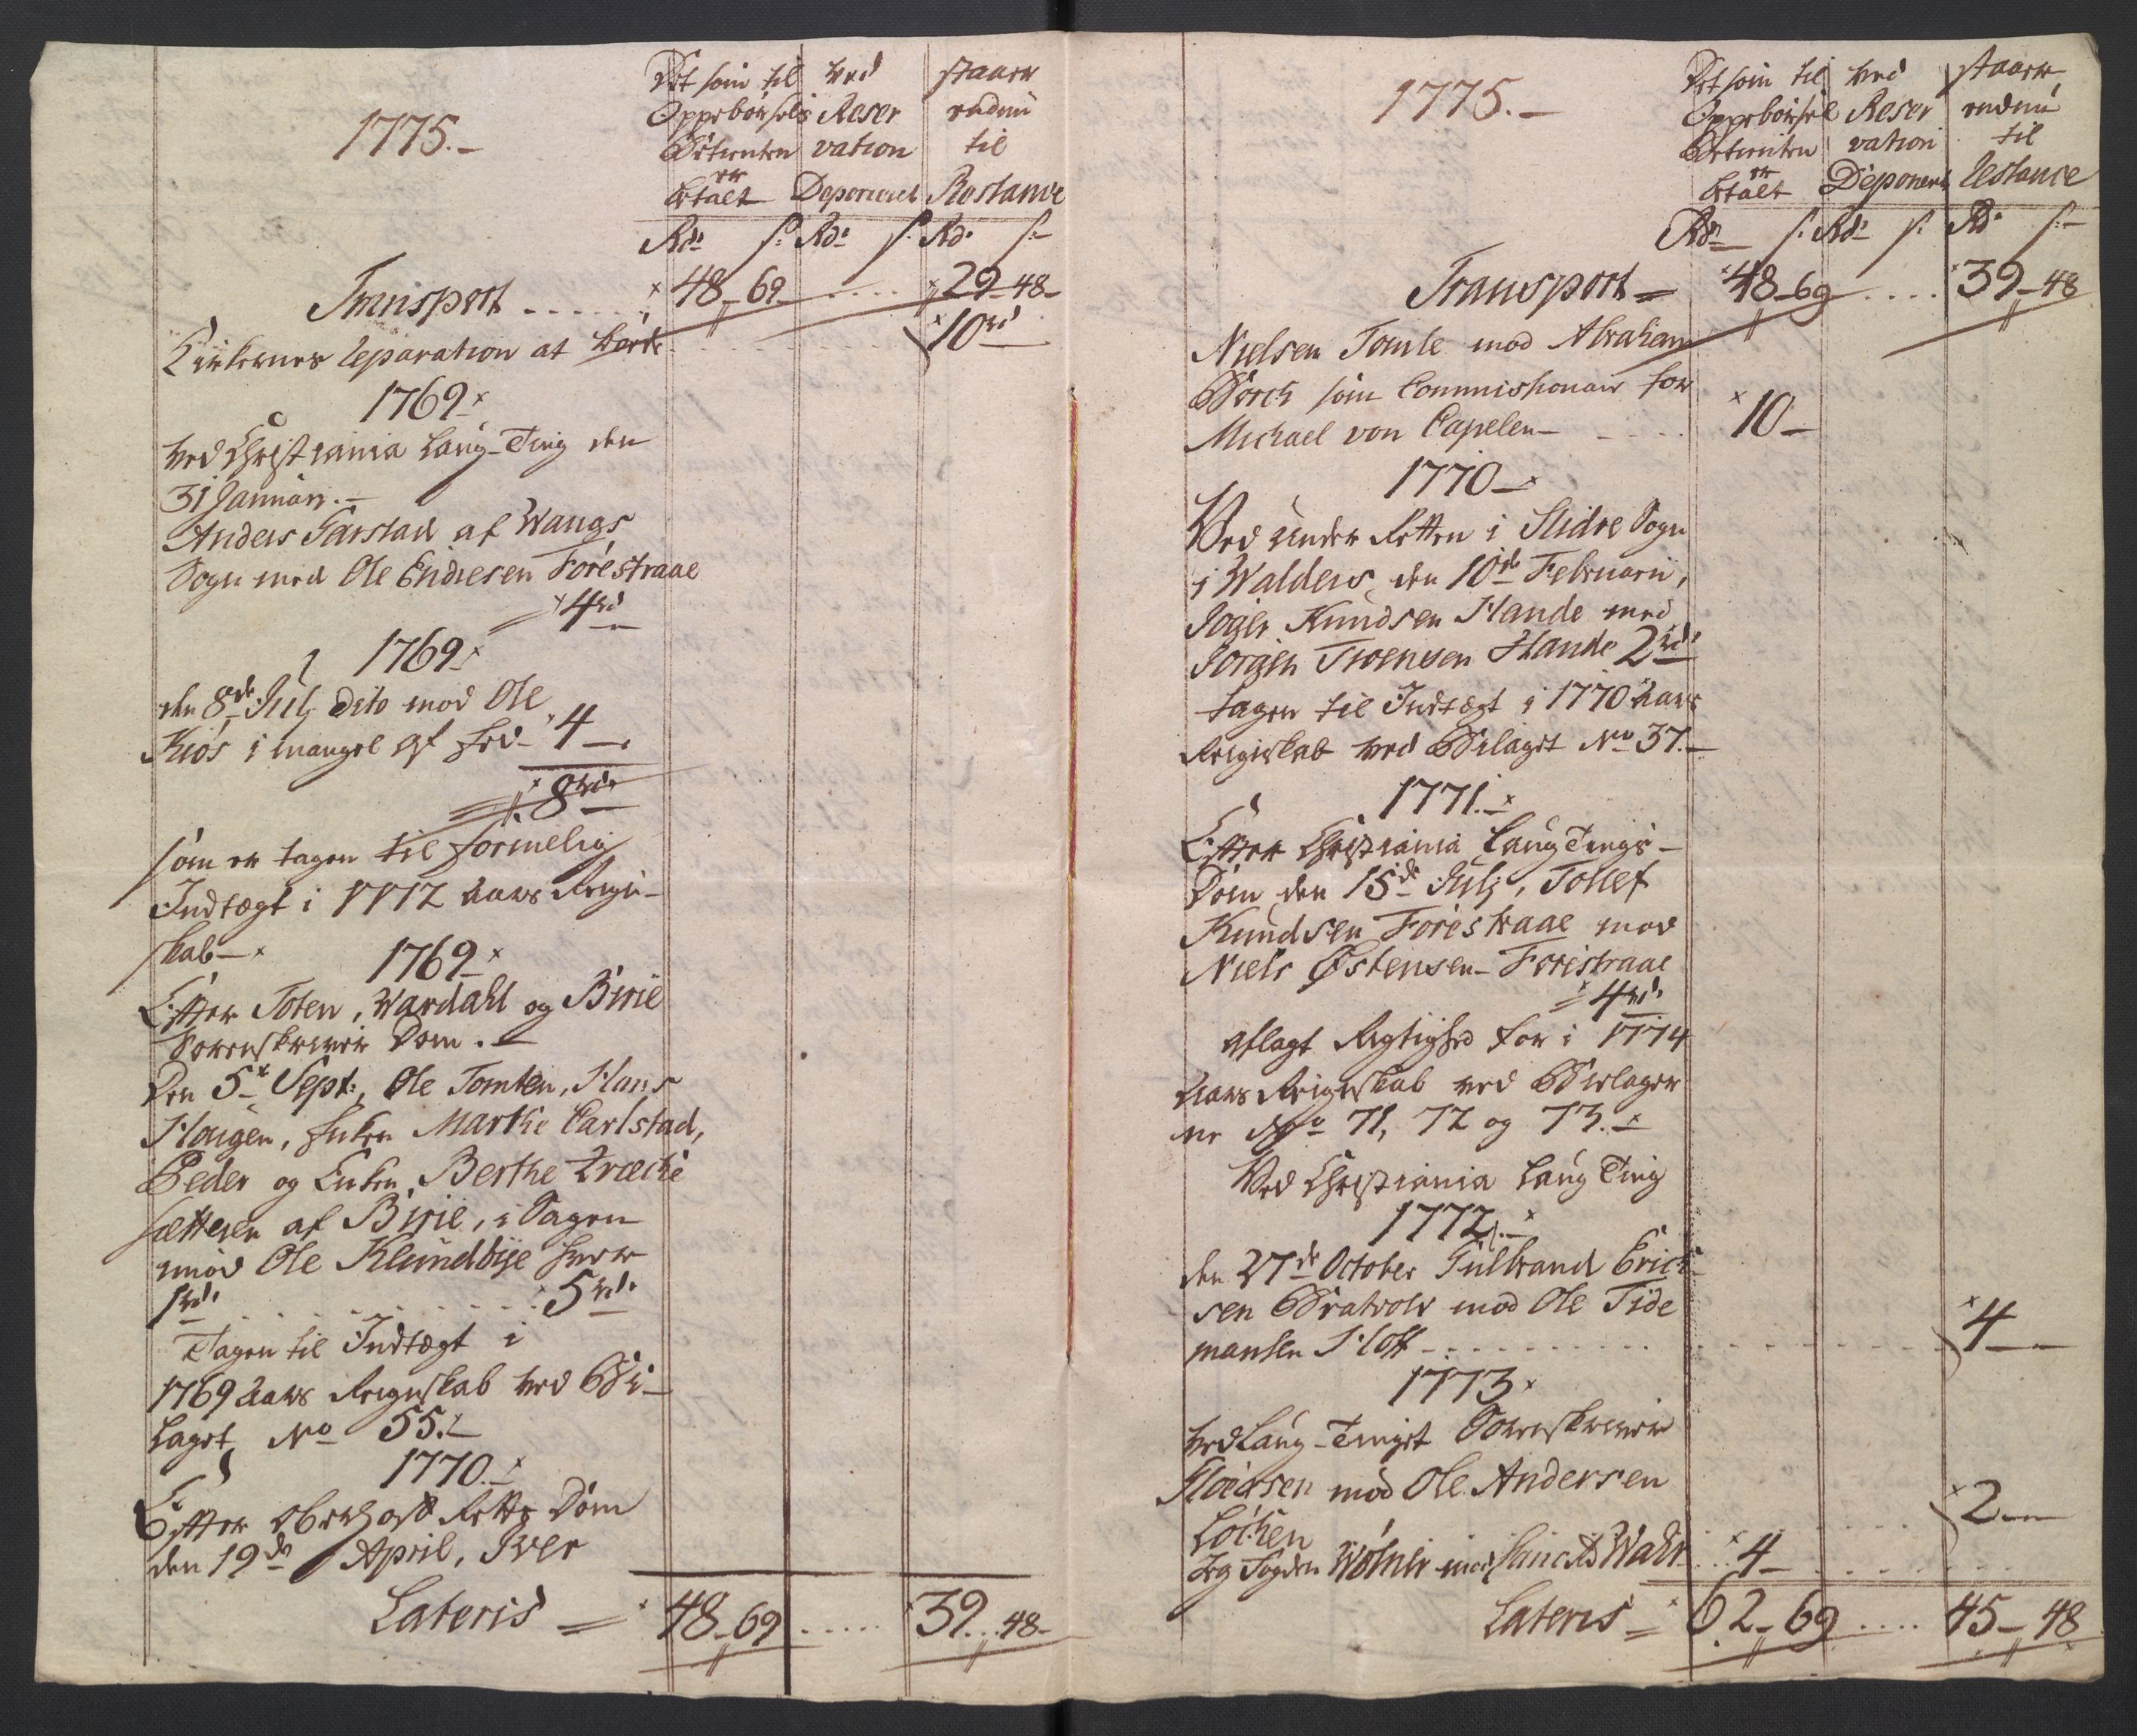 1775.-
Det som til ved staaer
Oppebørsels Reser endnu
Betienten vation til
er
betalt Deponeret Restance
Rd. s. Rd. s. Rd. s.
Transport - - - 48 - 69 - . . . . 29 - 48 -
Kirkernes Reparation at 10 rd
1769
ved Christiania Laug-Ting den
31 Januarij. -
Anders Garstad af Wangs
Sogn mod Ole Endresen Forestraae
4 rd
1769
den 8de Julj dito mod Ole
Kiøs i mangel af 4 -
8 rd
som er tagen til formelig
Indtægt i 1772 Aars Regn-
skab -
1769
Efter Toten, Wardahl og Birie
Sorenskriver Dom. -
Den 5t Sept: Ole Tomten, Hans
Haugen, Enken Marthe Carlstad,
Peder og Enken Berthe Kræche
sætteren af Birie, i Sagen
mod Ole Klundbye hver
1 rd. . . . . . . . 5 rd.
Tagen til Indtægt i
1769 Aars Regnskab ved Bi-
laget No 55. -
1770. -
Efter Rets Dom
den 19de April, Iver
Lateris = 48 - 69 . . . . . 39 . . 48 -
1775. -
Det som til ved staaer
Oppebørsel Reser endnu
Betienten vation til
er
betalt Deponert Restance
Rd. s. Rd. s. Rd. s.
Transport = 48 - 69 . . . . 39 - 48
Nielsen Tomle mod Abraham
Børch som Commissionair for
Michael von Capelen - - - - 10 -
1770 -
Ved Under Retten i Slidre Sogn
i Walders, den 10de Februarii,
Knudsen Hande mod
Jørgen Hande 2 rd.
tagen til Indtægt i 1770 Aars
Regnskab ved Bilaget No 37. -
1771. -
Efter Christiania Laug Tings -
Dom den 15de Julj, Tollef
Knudsen Forestraae mod
Niels Østensen Forestraae
4 rd.
aflagt Rigtighed for i 1774
Aars Regnskab ved Bielager
ne No 71, 72 og 73. -
Ved Christiania Laug Ting
1772. -
den 27de October Gulbrand Erich-
sen Bratvold mod Ole Tide
mansen Hoff - - - - - - - - 4 -
1773
ved Laug-Tinget Sorenskriver
Floedsen mod Ole Andersen
Løchen 2 -
Fogden Wølner mod 4 -
Lateris = 62 - 69 . . . . 45 - 48